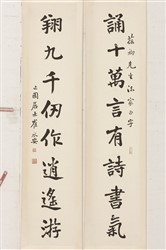 誦十萬言有詩書氣
先生法家正字
翔九千仞作逍遙游
居士崔永安